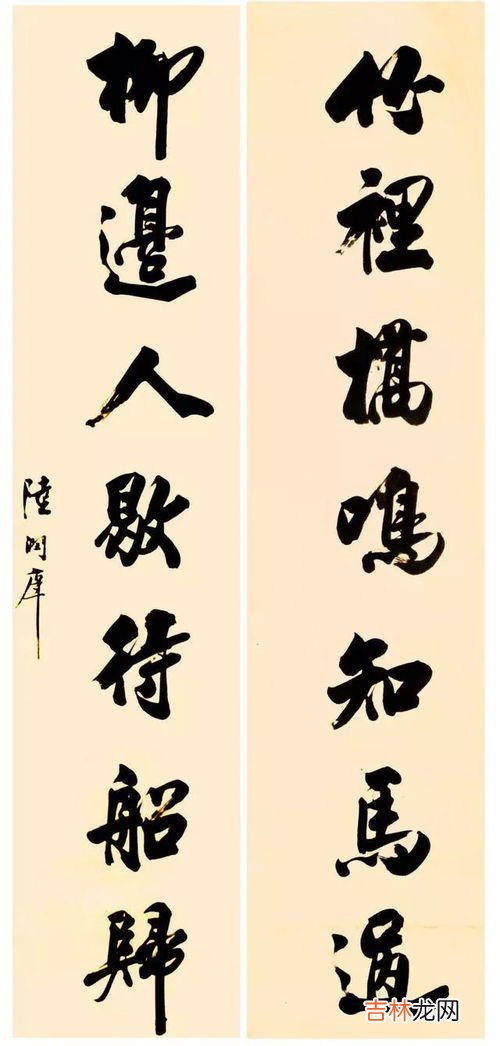 竹裡橋鳴知馬過
柳邊人歇待船歸
陸潤庠
吉林龙网